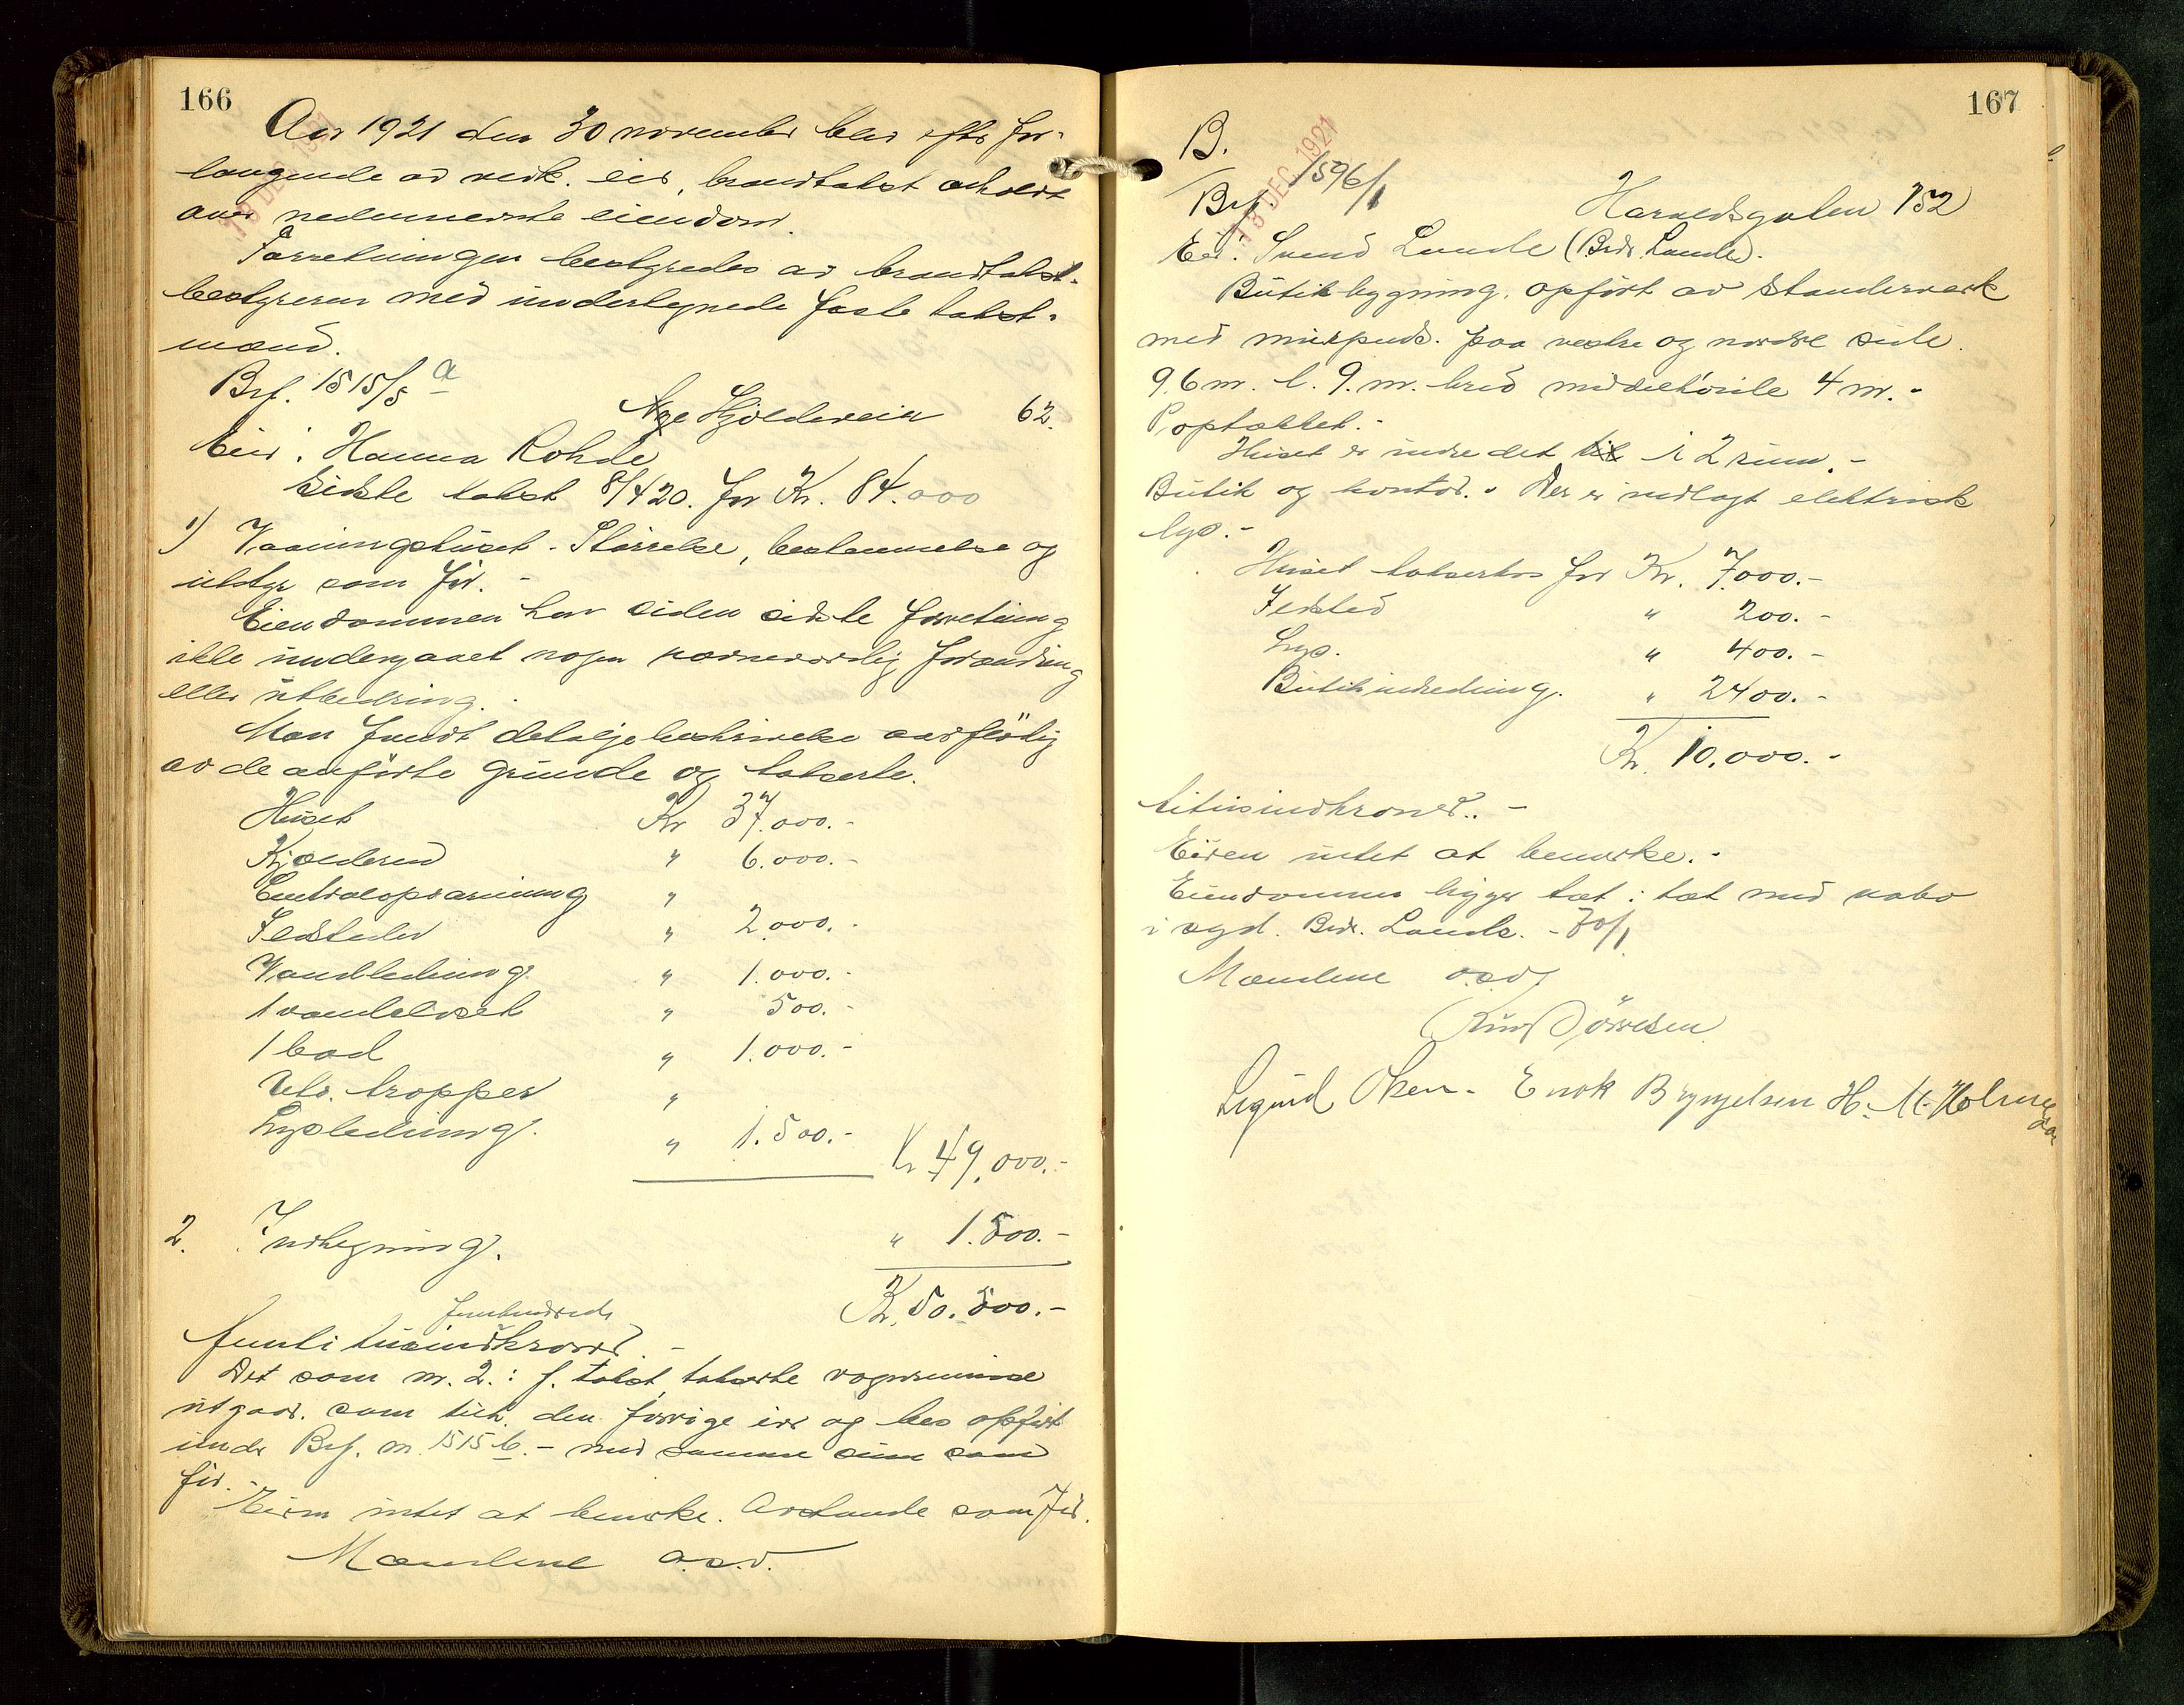 166
Aar 1921 den 30 november blev efter for-
langende av vedk. eier, brandtakst avholdt
over nedennevnte eiendom.
Forretningen bestyredes av brandtakst-
bestyreren med undertegnede faste takst-
mænd.
Brf. 1515/5 a
Nye Hjoldeveien 62.
Eier: Hanna Rohde
Sidste takst 8/4 20. for Kr. 84.000
1) Vaaningshuset. Størrelse, bestemmelse og
utstyr som før. -
Eiendommen har siden sidste forretning
ikke undergaaet nogen nævneværdig forandring
eller utbedring.
Man fandt detaljebeskrivelse overflødig
av de anførte grunde og takserte.
Huset Kr 37.000.-
Kjælderen " 6.000.-
Centralopvarming "
Ildsteder " 2.000.-
Vandledning " 1.000.-
1 vandcloset " 500.-
1 bad " 1.000.-
Utv. trapper "
Lysledning. " 1.500.- Kr 49.000.-
2. Indhegning. " 1.500.-
Kr. 50.500.-
femhundrede
femti tusindkroner. -
Det som nr. 2. i f. takst takserte vognremisse
utgaar. som tilh. den forrige eier og blev opført
under Brf. nr 1515 b. - med samme sum som
før. -
Eieren intet at bemerke. Avstande som før.
Mændene o.s.v.
167
13 DEC. 1921
B.
Brf. 1596/1
Haraldsgaten 152
Eier: Svend Lande (Brdr. Lande).
Butikbygning. opført av standerverk
med murpuds. paa vestre og nordre side.
9.6 m. l. 9. m. bred middelhøide 4 m. -
Paptækket. -
Huset er indredet til i 2 rum. -
Butik og kontor. - Der er indlagt elektrisk
lys. -
Huset takseres for Kr. 7.000.-
Ildsted " 200.-
Lys. " 400.-
Butikindredning. " 2400.-
Kr. 10.000.-
titusindkroner. -
Eieren intet at bemerke. -
Eiendommen ligger tæt i tæt med nabo
i syd. Brdr. Lande. - 70/1
Mændene o.s.v.
Sigurd Olsen. Enok Bryngelsen H. M. Holmedal